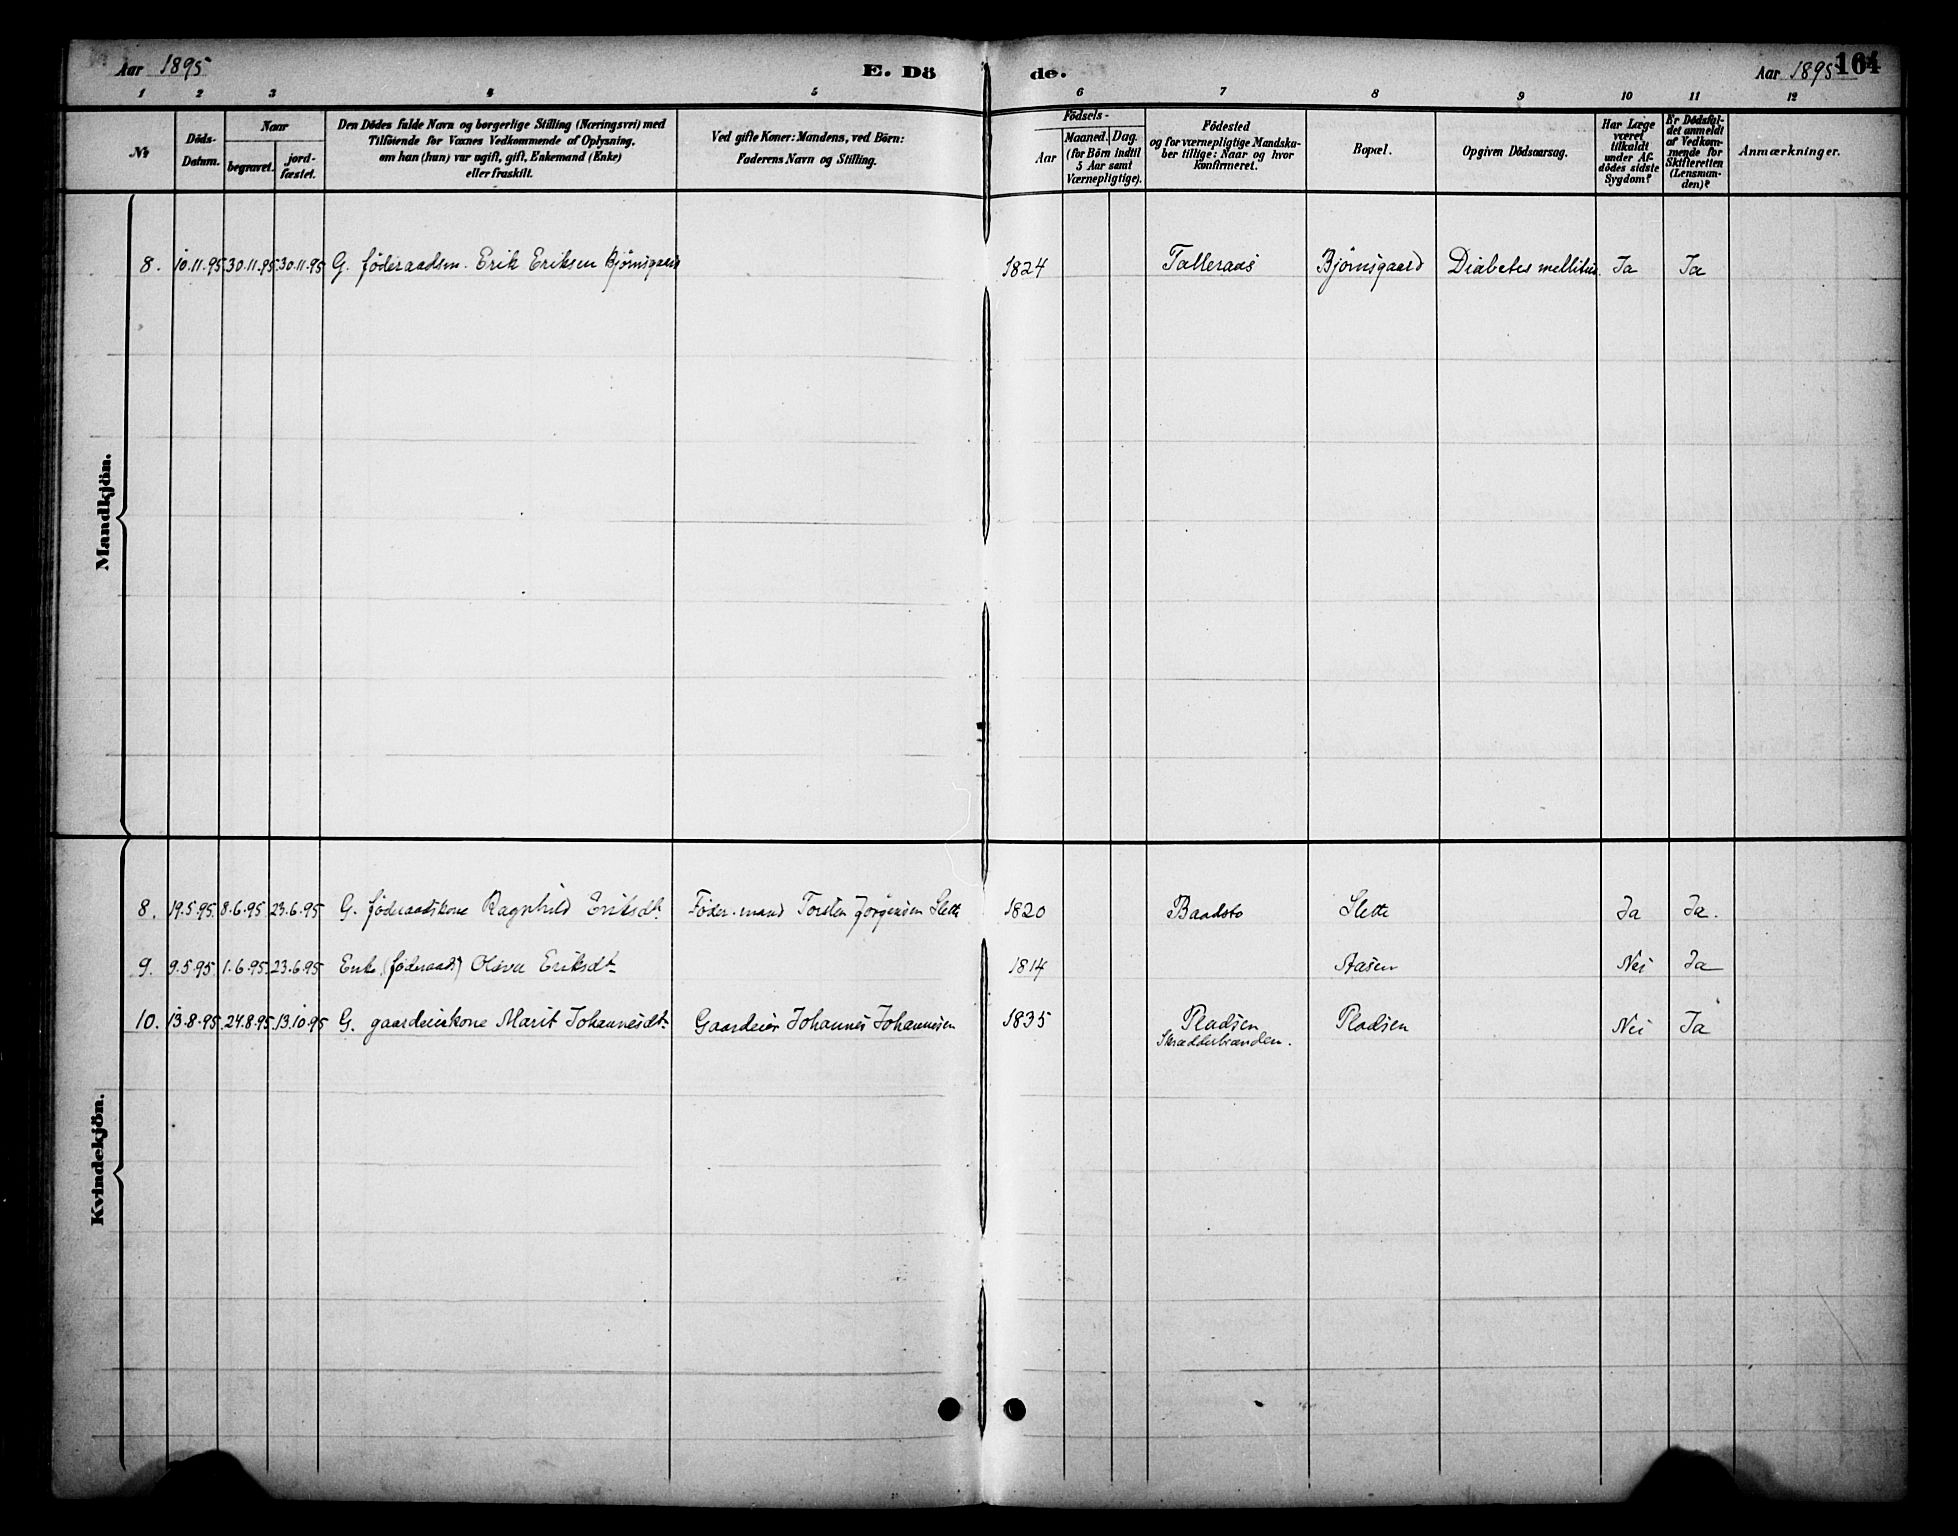 Aar 1895 E. Dö de. Aar 1895 164
1 2 3 4 5 6 7 8 9 10 11 12
No
Döds-
Datum.
Naar
begravet.
jord-
fæstet.
Den Dödes fulde Navn og borgerlige Stilling (Næringsvei) med
Tilföiende for Voxnes Vedkommende af Oplysning,
om han (hun) var ugift, gift, Enkemand (Enke)
eller fraskilt.
Ved gifte Koner: Mandens, ved Börn:
Faderens Navn og Stilling.
Födsels-
Aar
Maaned. Dag.
(for Börn indtil
5 Aar samt
Værnepligtige).
Födested
og for værnepligtige Mandska-
ber tillige: Naar og hvor
konfirmeret.
Bopæl.
Opgiven Dödsaarsag.
Har Læge
været
tilkaldt
under Af-
dödes sidste
Sygdom?
Er Dödsfal-
det anmeldt
af Vedkom-
mende for
Skifteretten
(Lensman-
den)?
Anmærkninger.
Mandkjön.
8. 10.11.95 30.11.95 30.11.95 G. føderaadsm. Erik Eriksen Bjørnsgaard 1824 Talleraas Bjørnsgaard Diabetes mellitus. Ja Ja
Kvindekjön.
8. 19.5.95 8.6.95 23.6.95 G. føderaadskone Ragnhild Eriksdt. Føder.mand Torsten Jørgensen Slette 1820 Baadsto Slette Ja Ja.
9. 9.5.95 1.6.95 23.6.95 Enke (føderaads) Oliva Eriksdt. 1814 Aasen Nei Ja
10. 13.8.95 24.8.95 13.10.95 G. gaardeierkone Marit Johannesdt. Gaardeier Johannes Johannesen 1835 Pladsen Pladsen Nei Ja